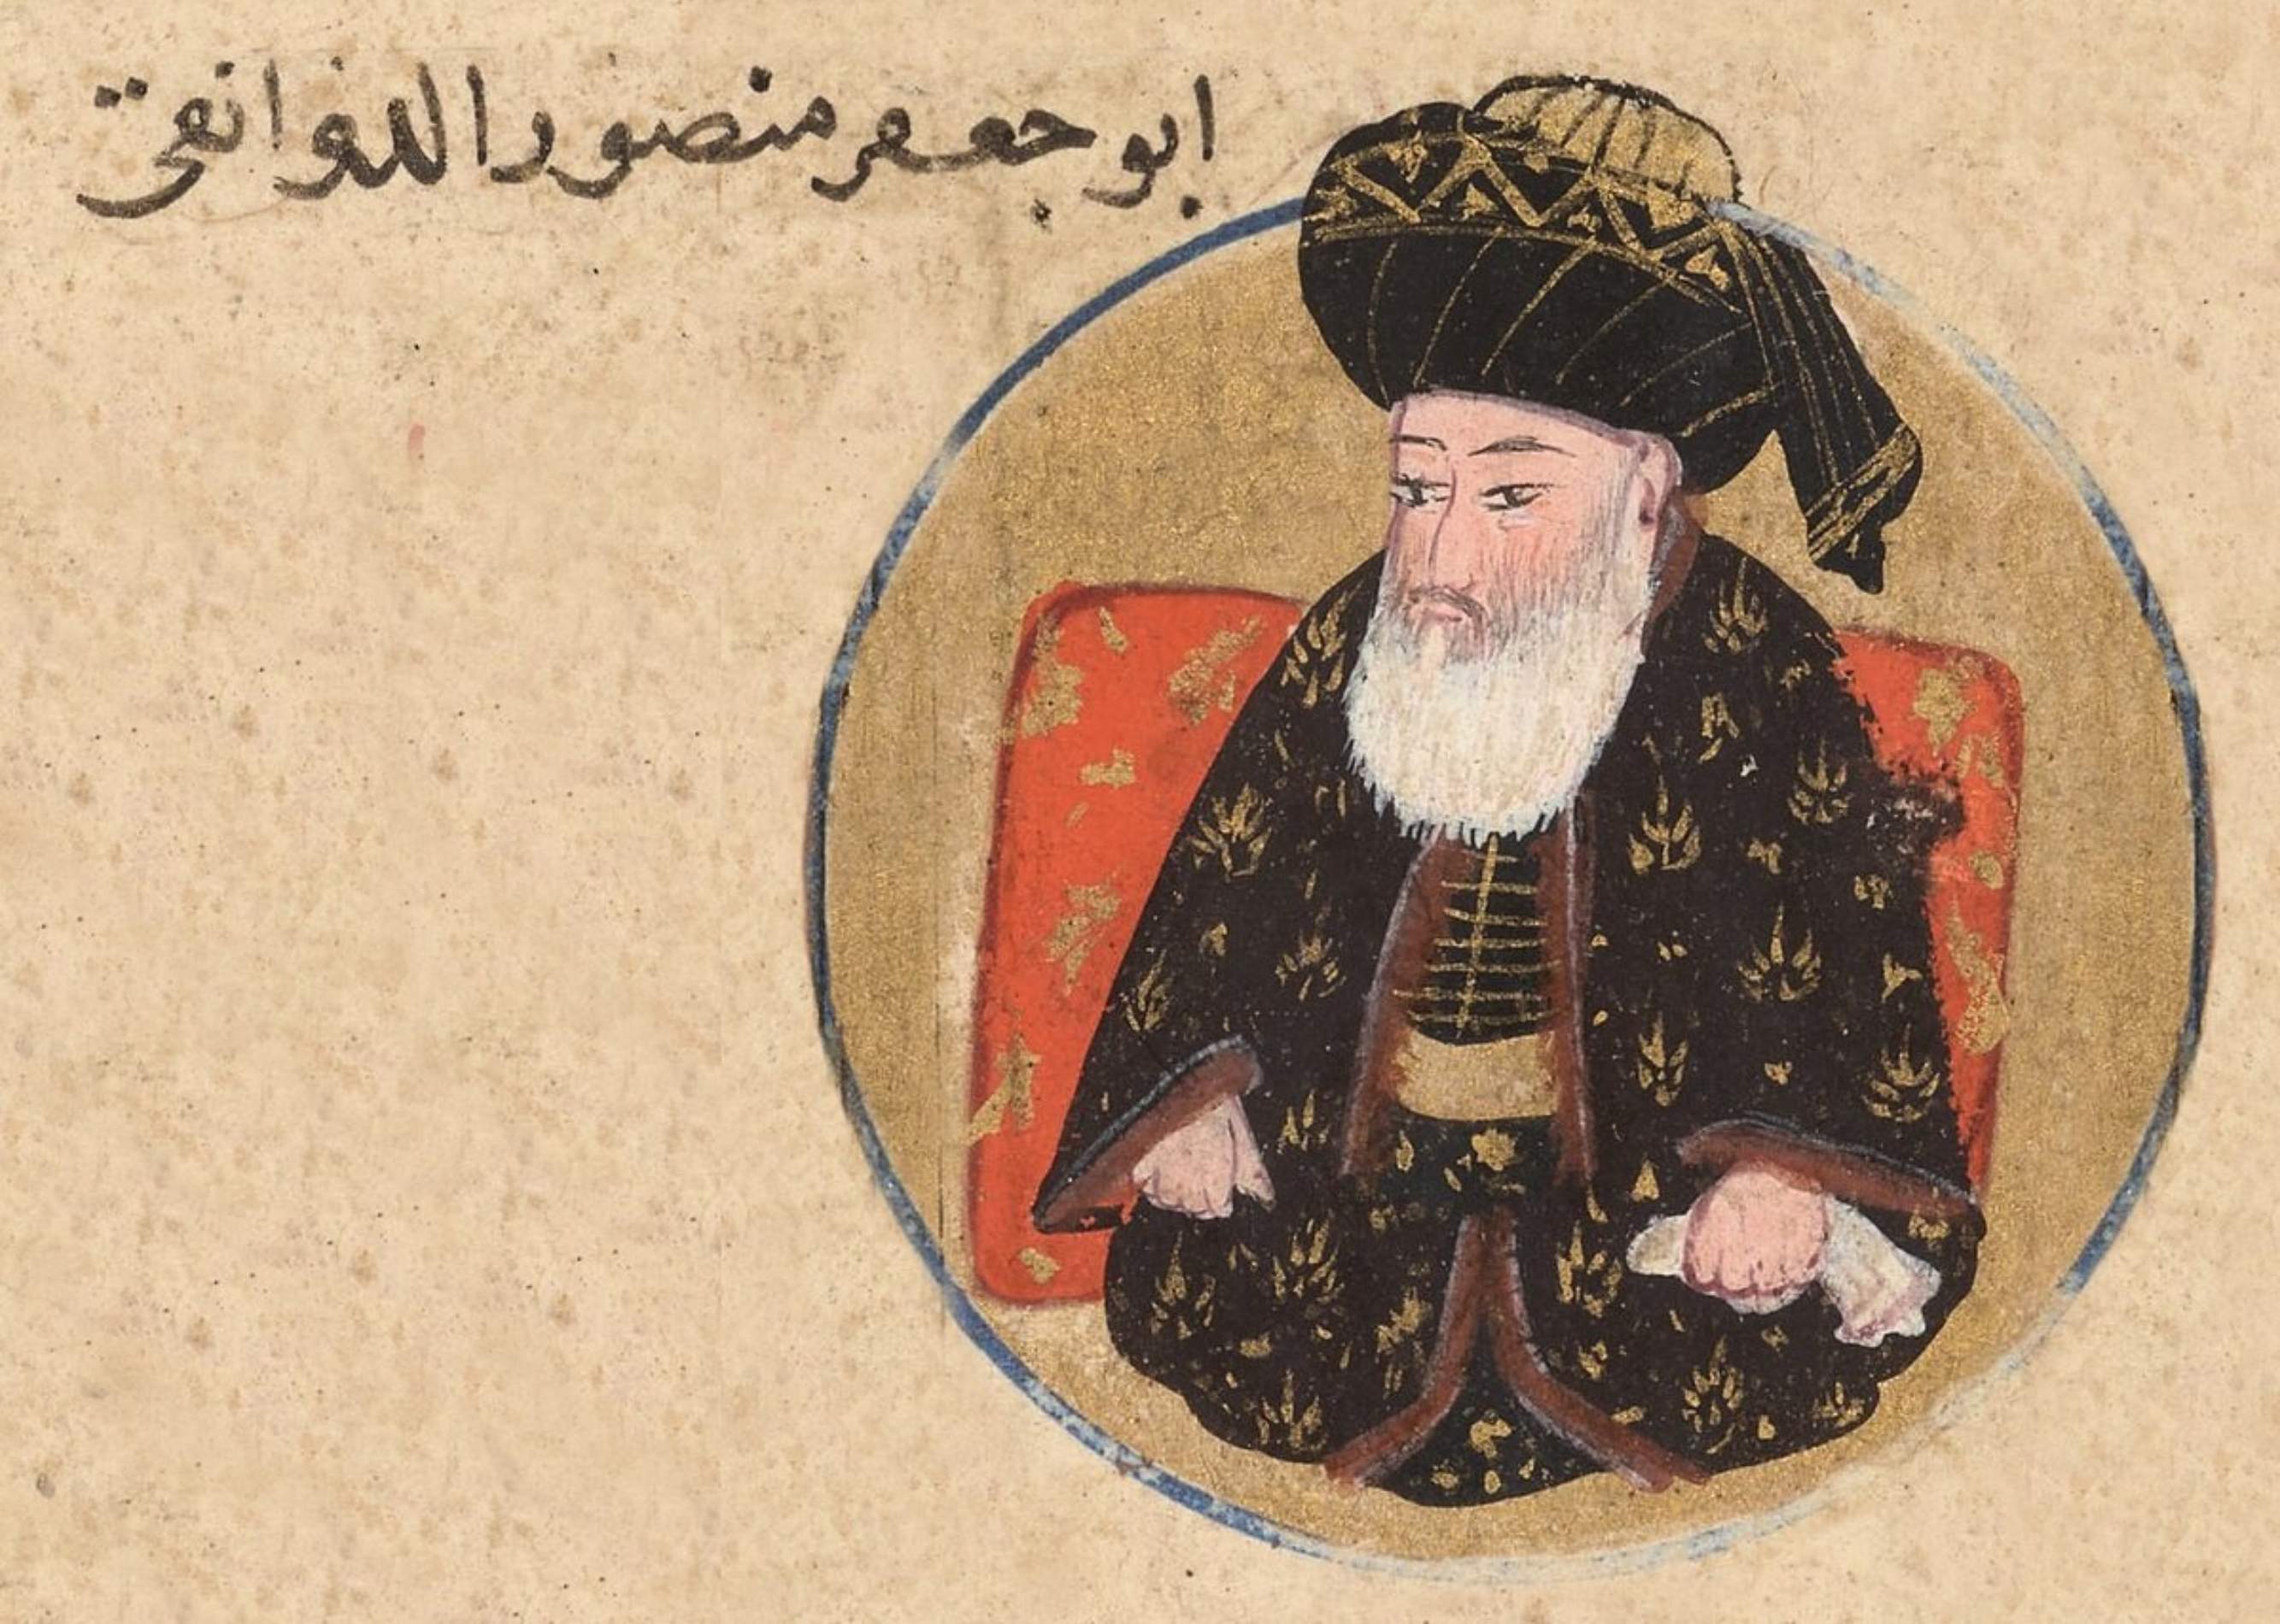 ابو جعفر منصور الدوانقى